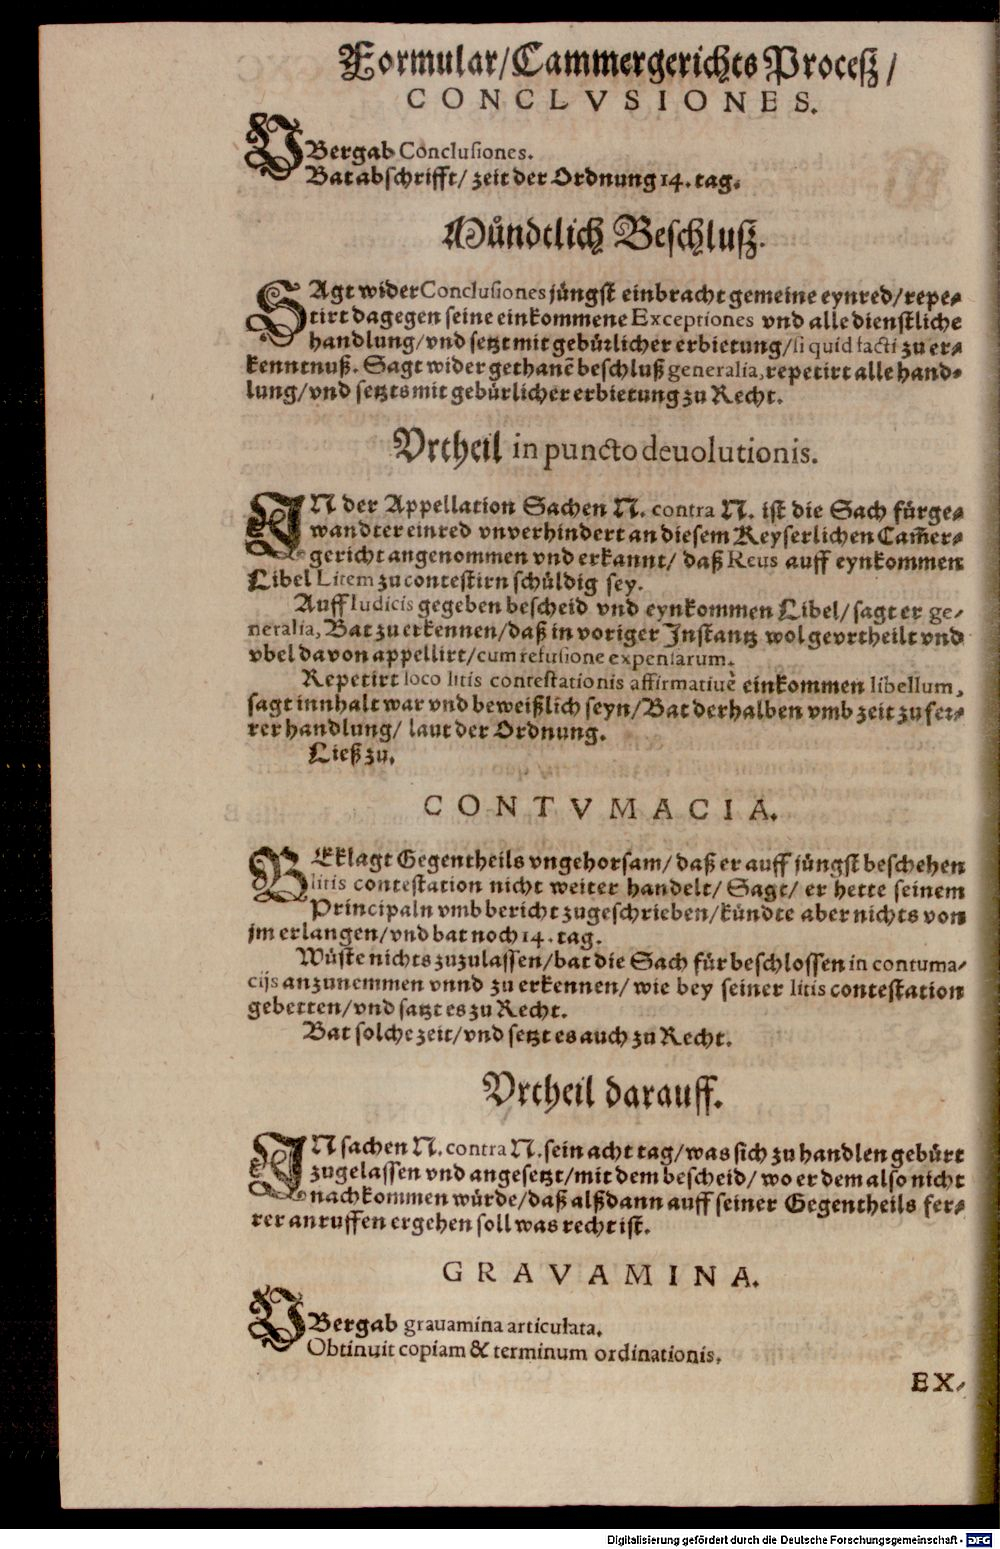 Formular/Cammergerichts Proceß/
CONCLVSIONES.
VBergab Conclusiones.
Bat abschrifft/ zeit der Ordnung 14. tag.
Mündtlich Beschluß.
SAgt wider Conclusiones jüngst einbracht gemeine eynred/repe-
tirt dagegen seine einkommene Exceptiones vnd alle dienstliche
handlung/vnd setzt mit gebürlicher erbietung/si quid facti zu er-
kenntnuß. Sagt wider gethanē beschluß generalia, repetirt alle hand-
lung/vnd setzts mit gebürlicher erbietung zu Recht.
Vrtheil in puncto deuolutionis.
IN der Appellation Sachen N. contra N. ist die Sach fürge-
wandter einred vnverhindert an diesem Keyserlichen Cam̄er-
gericht angenommen vnd erkannt/ daß Reus auff eynkommen
Libel Litem zu contestirn schüldig sey.
Auff Iudicis gegeben bescheid vnd eynkommen Libel/ sagt er ge-
neralia, Bat zu erkennen/daß in voriger Instantz wol gevrtheilt vnd
vbel davon appellirt/cum refusione expensarum.
Repetirt loco litis contestationis affirmatiuè einkommen libellum,
sagt innhalt war vnd beweißlich seyn/Bat derhalben vmb zeit zu fer-
rer handlung/ laut der Ordnung.
Ließ zu.
CONTVMACIA.
BEklagt Gegentheils vngehorsam/ daß er auff jüngst beschehen
litis contestation nicht weiter handelt/ Sagt/ er hette seinem
Principaln vmb bericht zugeschrieben/kündte aber nichts von
jm erlangen/vnd bat noch 14. tag.
Wüste nichts zuzulassen/bat die Sach für beschlossen in contuma-
cijs anzunemmen vnnd zu erkennen/ wie bey seiner litis contestation
gebetten/vnd satzt es zu Recht.
Bat solche zeit/vnd setzt es auch zu Recht.
Vrtheil darauff.
IN sachen N. contra N. sein acht tag/was sich zu handlen gebürt
zugelassen vnd angesetzt/mit dem bescheid/ wo er dem also nicht
nachkommen würde/daß alßdann auff seiner Gegentheils fer-
rer anruffen ergehen soll was recht ist.
GRAVAMINA.
VBergab grauamina articulata.
Obtinuit copiam & terminum ordinationis.
EX-
Digitalisierung gefördert durch die Deutsche Forschungsgemeinschaft - DFG